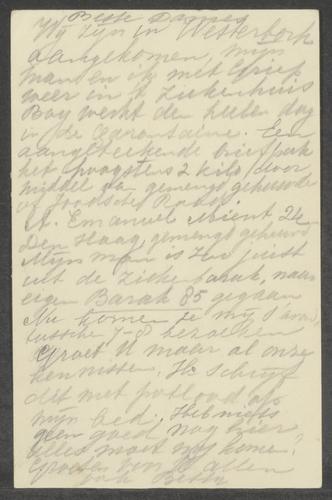 Beste Dames
Wij zijn in Westerbork
aangekomen, mijn
man en ik met Griep
weer in 't Ziekenhuis
Bay werkt de heelen dag
in de Quarantaine. Een
aangeteekende briefpak
het hoogstens 2 kilo door
middel van gemengd gehuwde
of Joodsche Raad
A. Emanuel 24
Den Haag, gemengd gehuwd
Mijn man is juist
uit de Zieke barak, naar
eigen Barak 85 gegaan
Nu komen ze mij 's avon
tussche 7-8 bezoeken
Groet U maar al onze
kennissen. Ik schrijf
dit met potlood op
mijn bed. Heb niets
geen goed nog hier
alles moet nog komen.
Groeten van allen
ook Betsy